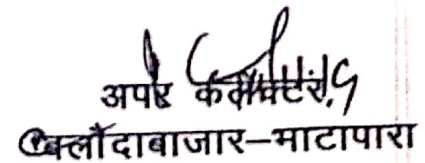 अपर कलेक्टर,
बलौदाबाजार-भाटापारा